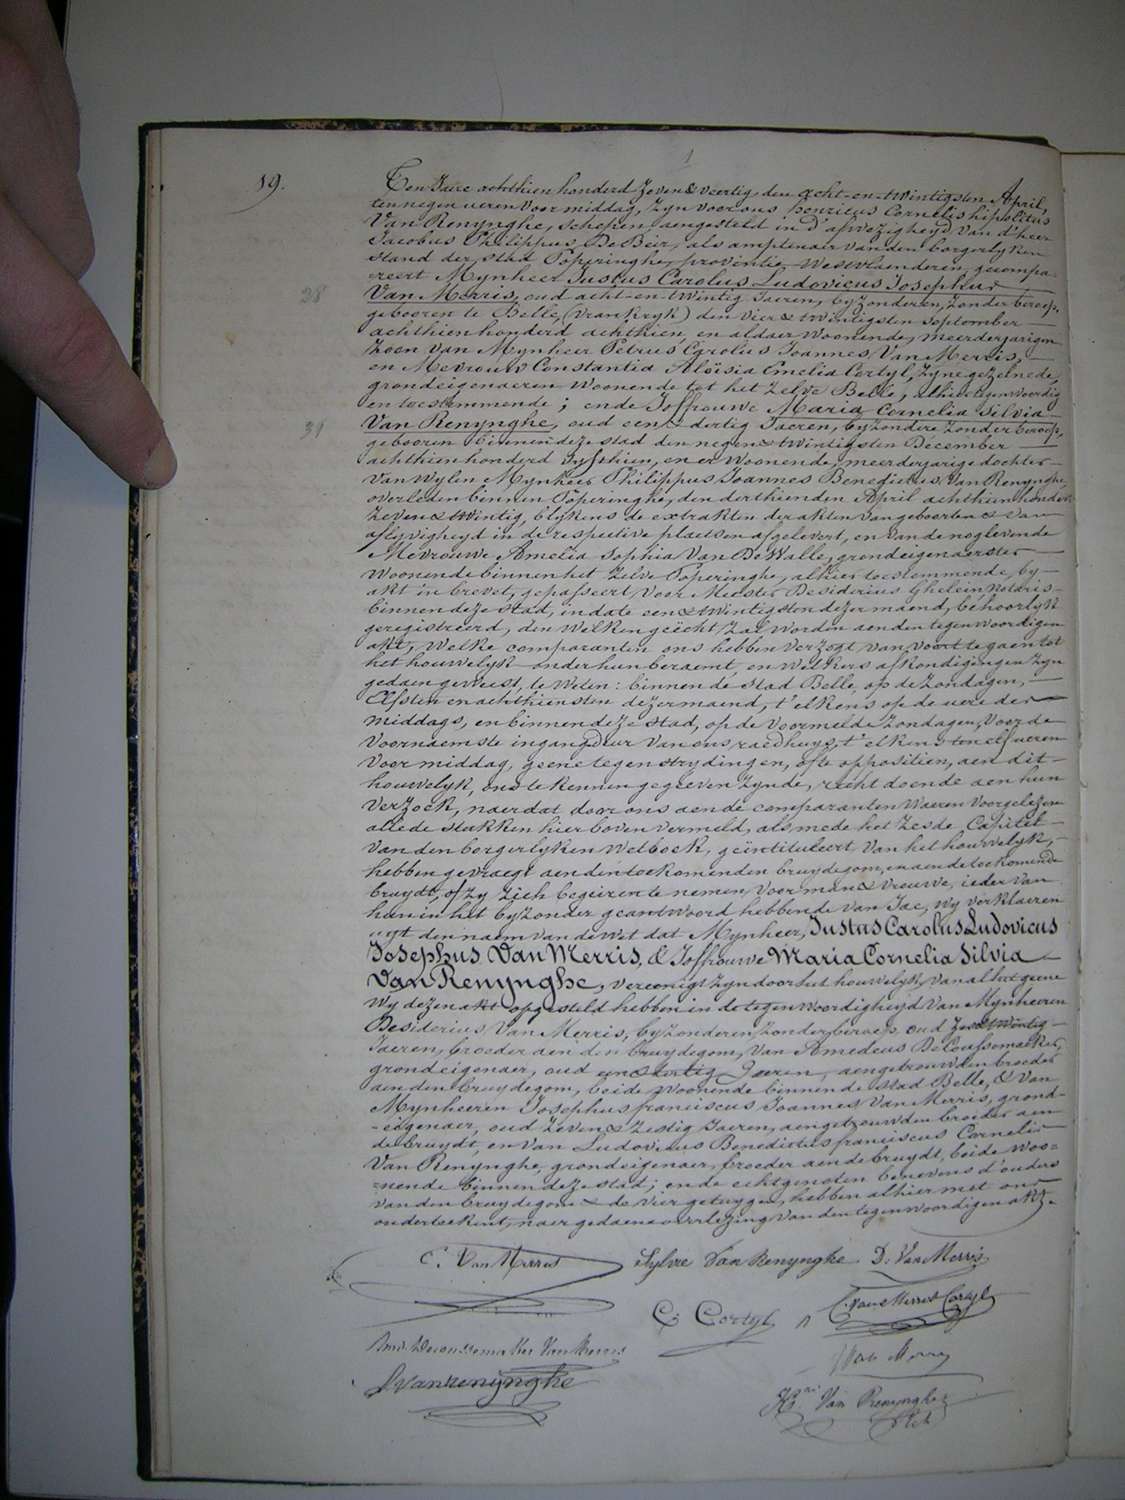 1
19.
Ten Jaere achthien honderd Zeven & veertig, den acht-en-twintigsten April,
ten negen ueren voor middag, Zyn voor ons Henricus Cornelis hipolitus
Van Renynghe, schepen aengesteld in d'afwezigheyd van d'heer
Jacobus Philippus De Beir, als amptenaer van den borgerlyken
stand der stad Poperinghe, provintie Westvlaenderen, gecompa-
38
-reert Mynheer Justus Carolus Ludovicus Josephus
Van Merris, oud acht-en-twintig Jaeren, byzonderen, Zonder beroep,
gebooren te Belle, (Vrankryk) den vier & twintigsten September
achthien honderd achthien, en aldaer woonende, meerderjarigen
Zoon van Mynheer Petrus Carolus Joannes Van Merris,
en Mevrouw Constantia Aloïsia Emelia Cortyl, Zyne gezelnede,
grondeigenaeren woonende tot het zelve Belle, alhier tegenwoordig
en toestemmende; ende Joffrouwe Maria Cornelia Silvia
31
Van Renynghe, oud een & dertig Jaeren, byzondere Zonder beroep,
gebooren binnen deze stad den negen & twintigsten December
achthien honderd vyfthien, en er woonende, meerderjarige dochter
van wylen Mynheer Philippus Joannes Benedictus Van Renynghe,
overleden binnen Poperinghe, den derthienden April achthien honderd
Zeven & twintig, blykens de extrakten der akten van geboorten & van
aflyvigheyd in de respective plaetsen afgelevert, en van de nog levende
Mevrouwe Amelia Sophia Van De Walle, grondeigenaerster
woonende binnen het zelve Poperinghe, alhier toestemmende, by
akt in brevet, gepasseert voor Meester Desiderius Ghelein notaris
binnen deze stad, in date een & twintigsten dezer maend, behoorlyk
geregistreerd, die welken geëcht zal worden aen den tegenwoordigen
akt, welke comparanten ons hebben verzogt van voort te gaen tot
het houwelyk onder hun beraemt, en welkers afkondigingen zyn
gedaen geweest, te weten: binnen de stad Belle, op de Zondagen,
Elfsten en achthiensten dezer maend, t'elkens op de uere der
middags, en binnen deze stad, op de voormelde Zondagen, voor de
voornaemste ingangdeur van ons raedhuys, t'elkens ten elf ueren
voor middag, geene tegenstrydingen, ofte oppositien, aen dit
houwelyk, ons te kennen gegeeven zynde, recht doende aen hun
verzoek, naer dat door ons aen de comparanten waeren voorgelezen
alle de stukken hier boven vermeld, als mede het zesde Capitel
van den borgerlyken Wetboek, geïntituleert van het houwelyk,
hebben gevraegt aen den toekomenden bruydegom, en aen de toekomende
bruydt, of zy zich begeiren te nemen, voor man & vrouwe, ieder van
hun in het byzonder geantwoord hebbende van Jae, wy verklaeren
uyt den naem van de Wet dat Mynheer, Justus Carolus Ludovicus
Josephus Van Merris, & Joffrouwe Maria Cornelia Silvia
Van Renynghe, vereenigt zyn door het houwelyk, van al het geene
wy dezen akt opgesteld hebben in de tegenwoordigheyd van Mynheeren
Desiderius Van Merris, byzonderen, zonder beroep, oud zes & twintig
Jaeren, broeder aen den bruydegom, van Amedeus De Coussemaeker,
grondeigenaer, oud een & dertig Jaeren, aengetrouwden broeder
aen den bruydegom, beide woonende binnen de stad Belle, & van
Mynheeren Josephus franciscus Joannes Van Merris, grond-
-eigenaer, oud Zeven & Zestig Jaeren, aengetrouwden broeder aen
de bruydt, en van Ludovicus Benedictus franciscus Cornelis
Van Renynghe, grondeigenaer, broeder aen de bruydt, beide woo-
-nende binnen deze stad; ende echtgenoten benevens d'ouders
van den bruydegom & de vier getuygen, hebben alhier met ons
onderteekent, naer gedaene voorlezing van den tegenwoordigen akt.
C. Van Merris Sylvie Van Renynghe D. Van Merris
C. Cortyl C. Van Merris Cortyl
Decoussemaker Van Merris Van Merris
L Vanrenynghe
Van Renynghe
Sch